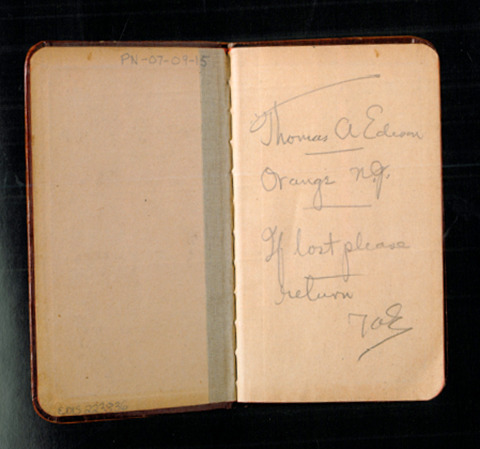 PN-07-09-15
Thomas A Edison
Orange N.J.
If lost please
return
TAE